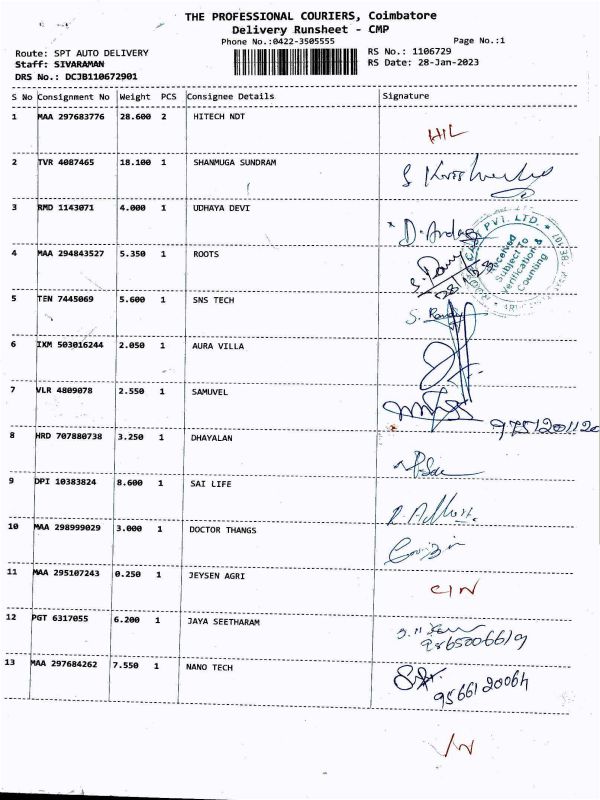 THE PROFESSIONAL COURIERS, Coimbatore
Delivery Runsheet - CMP
Phone No.:0422-3505555
Page No.:1
Route: SPT AUTO DELIVERY
RS No.: 1106729
Staff: SIVARAMAN
RS Date: 28-Jan-2023
DRS No.: DCJB110672901
S No Consignment No Weight PCS Consignee Details Signature
1 MAA 297683776 28.600 2 HITECH NDT
HIL
2 TVR 4087465 18.100 1 SHANMUGA SUNDRAM
3 RMD 1143071 4.000 1 UDHAYA DEVI
PVT. LTD.
Received
Subject To
Verification &
Counting
4 MAA 294843527 5.350 1 ROOTS
5 TEN 7445069 5.600 1 SNS TECH
6 IXM 503016244 2.050 1 AURA VILLA
7 VLR 4809078 2.550 1 SAMUVEL
9751201120
8 HRD 707880738 3.250 1 DHAYALAN
9 DPI 10383824 8.600 1 SAI LIFE
10 MAA 298999029 3.000 1 DOCTOR THANGS
11 MAA 295107243 0.250 1 JEYSEN AGRI
CIN
12 PGT 6317055 6.200 1 JAYA SEETHARAM
9865006619
13 MAA 297684262 7.550 1 NANO TECH
9566120064